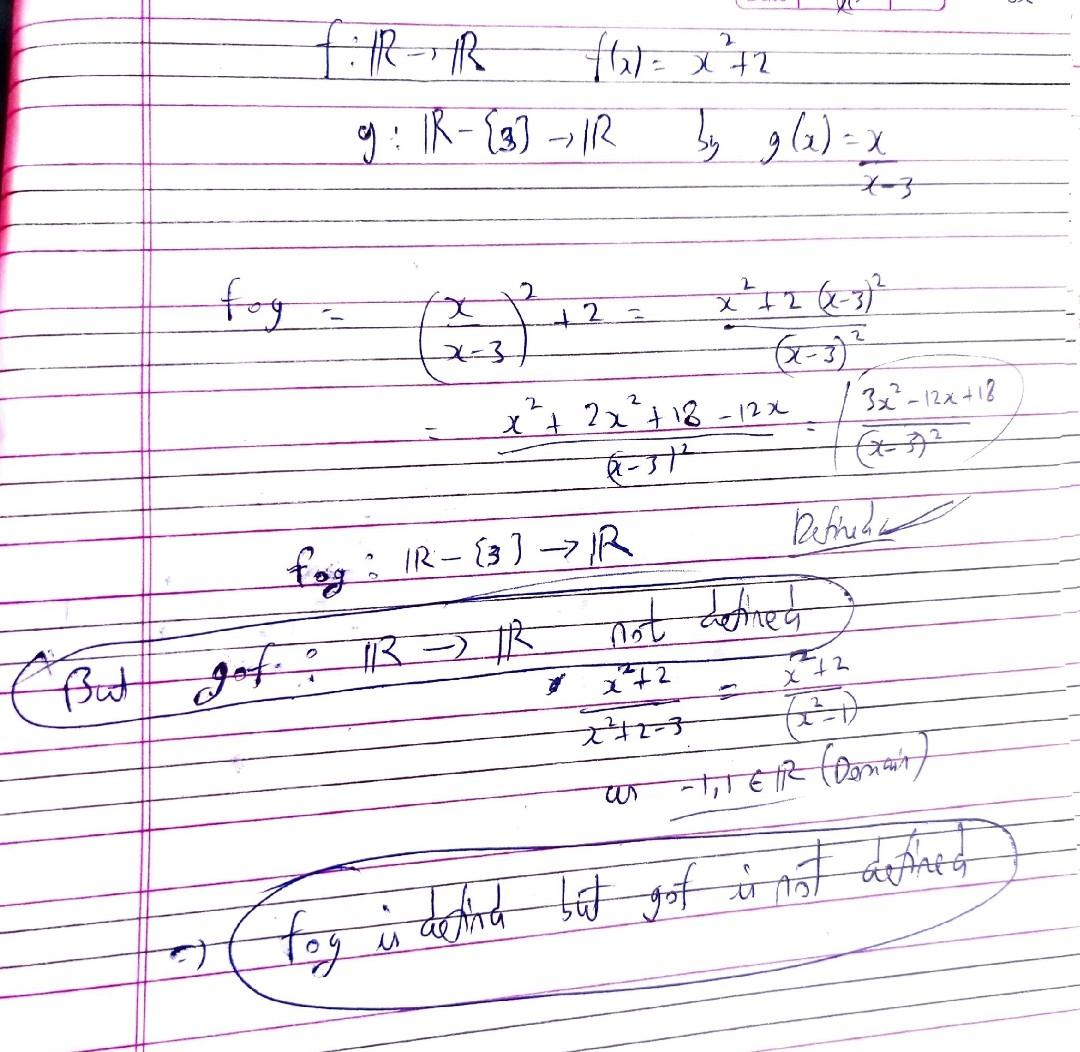 f : ℝ → ℝ f(x) = x²+2
g : ℝ - {3} → ℝ by g(x) = x/(x-3)
fog = (x/(x-3))² + 2 = (x² + 2(x-3)²)/(x-3)²
= (x² + 2x² + 18 - 12x)/(x-3)² = (3x² - 12x + 18)/(x-3)²
Defined ✓
fog : ℝ - {3} → ℝ
But gof : ℝ → ℝ not defined
(x²+2)/(x²+2-3) = (x²+2)/(x²-1)
as -1, 1 ∈ ℝ (Domain)
=> fog is defind but gof is not defined